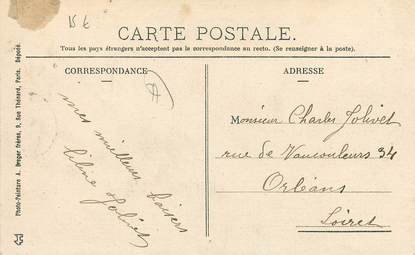 15 €
CARTE POSTALE.
Tous les pays étrangers n'acceptent pas la correspondance au recto. (Se renseigner à la poste).
CORRESPONDANCE
mes meilleurs baisers
Céline Jolivet
ADRESSE
Monsieur Charles Jolivet
rue de Vaucouleurs 34
Orléans
Loiret
Photo-Peinture A. Breger frères, 9, Rue Thénard, Paris. Déposé.